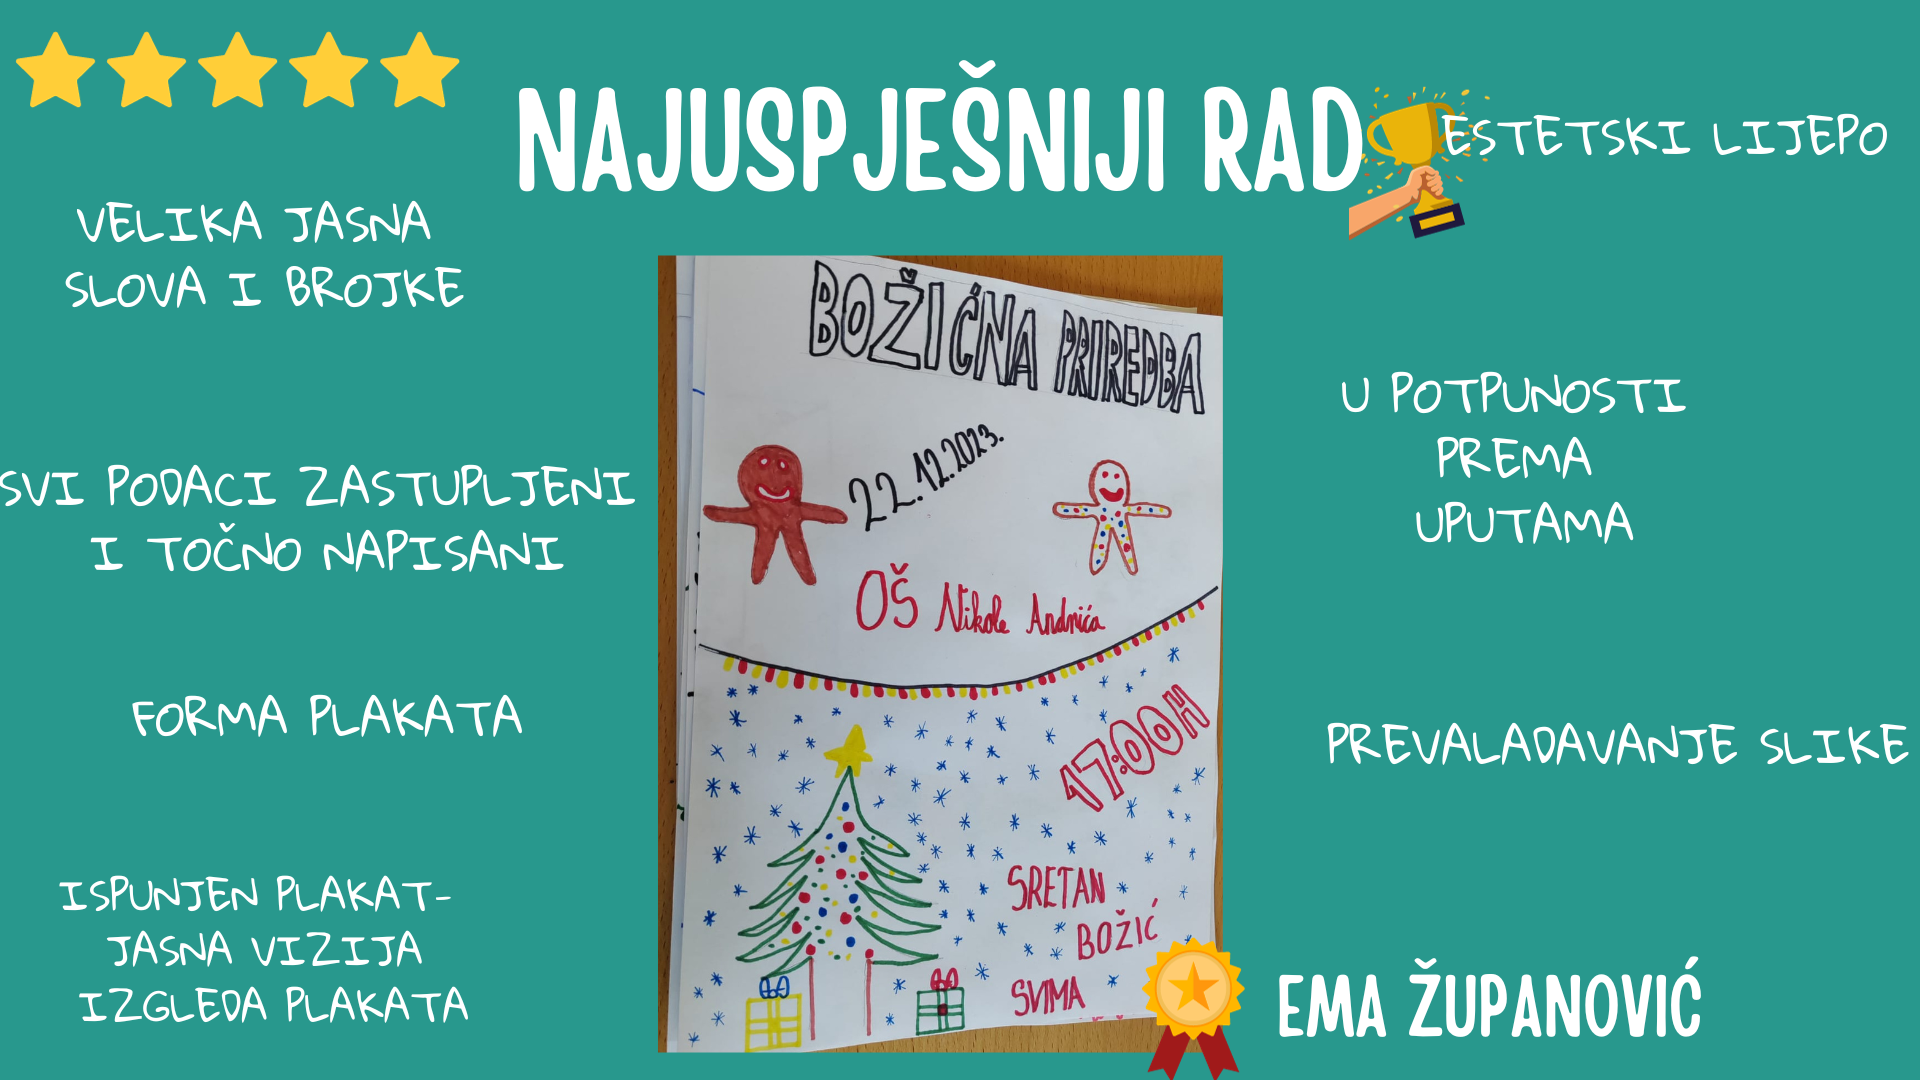 NAJUSPJEŠNIJI RAD
ESTETSKI LIJEPO
VELIKA JASNA
SLOVA I BROJKE
U POTPUNOSTI
PREMA
UPUTAMA
SVI PODACI ZASTUPLJENI
I TOČNO NAPISANI
FORMA PLAKATA
PREVALADAVANJE SLIKE
ISPUNJEN PLAKAT-
JASNA VIZIJA
IZGLEDA PLAKATA
BOŽIĆNA PRIREDBA
22.12.2023.
OŠ Nikole Andrića
17:00H
SRETAN
BOŽIĆ
SVIMA
EMA ŽUPANOVIĆ